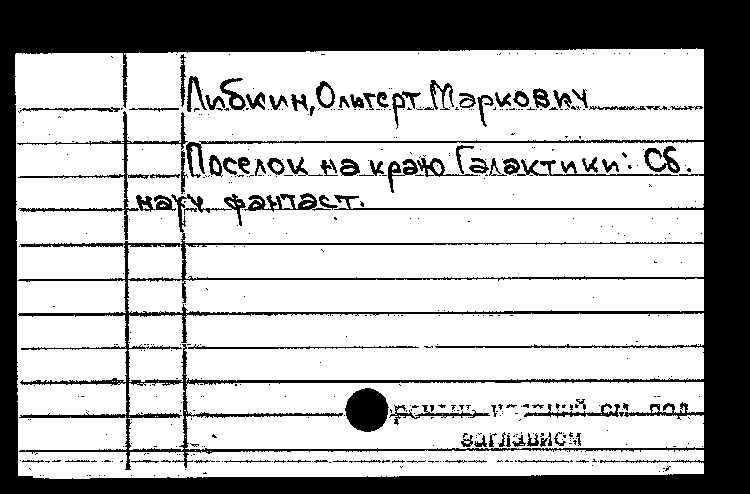 Либкин, Ольгерт Маркович
Поселок на краю Галактики: Сб.
науч. фантаст.
см. под
заглавием